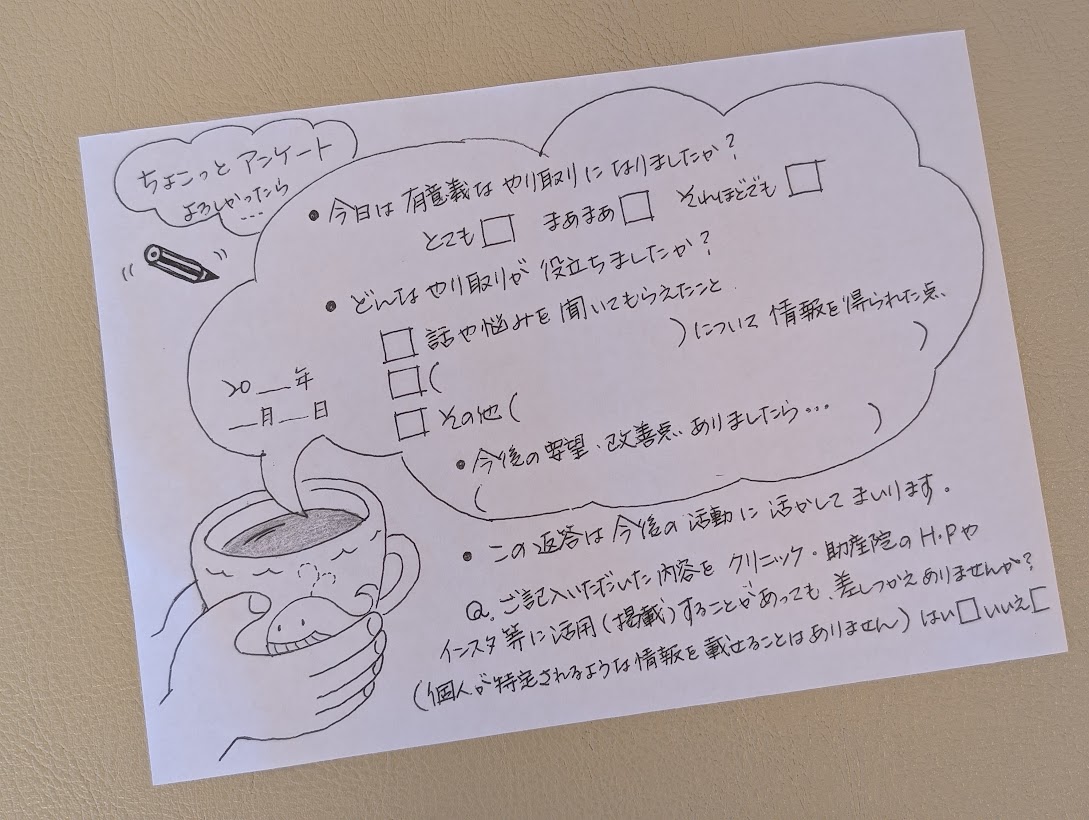 ちょこっとアンケート
よろしかったら
...
• 今日は有意義なやり取りになりましたか？
とても□ まあまあ□ それほどでも□
• どんなやり取りが役立ちましたか？
□ 話や悩みを聞いてもらえたこと
□( )について情報を得られた点
□ その他( )
20__年
__月__日
• 今後の要望、改善点、ありましたら...
( )
• この返答は今後の活動に活かしてまいります。
Q. ご記入いただいた内容をクリニック・助産院のH.Pや
インスタ等に活用(掲載)することがあっても、差しつかえありませんか？
(個人が特定されるような情報を載せることはありません) はい□いいえ□